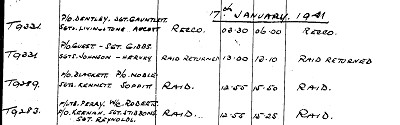 17th JANUARY, 1941
T9332. P/O. BENTLEY, SGT. GAUNTLETT.
SGTS. LIVINGSTONE, ABBOTT RECCO. 03.30 06.00 RECCO.
T9331 P/O. GUEST - SGT. GIBBS.
SGTS. JOHNSON - HERVEY RAID RETURNED 13.00 13.10 RAID RETURNED
T9289. P/O. BLACKETT. P/O. NOBLE
SGTS. KENNETT SOPPITT RAID. 12.55 15.50 RAID.
T9283. F/LTR. PERRY. W/C. ROBERTS.
P/O. KEENAN. SGT. STIBBONS RAID... 12.55 15.25 RAID.
SGT. REYNOLDS.